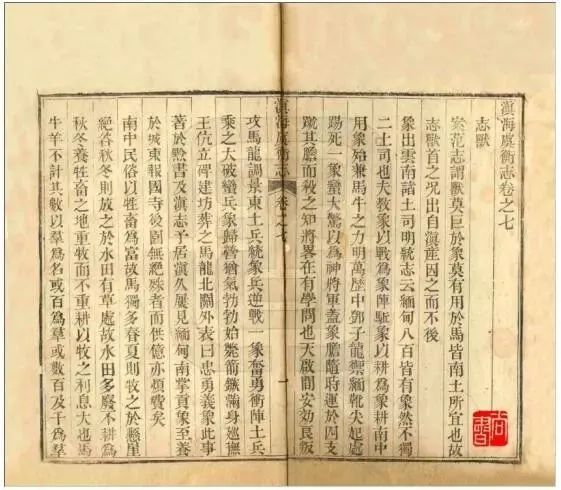 滇海虞衡志卷之七
志獸
案范志謂獸莫巨於象莫有用於馬皆南土所宜也故
志獸首之况出自滇產因之而不後
象出雲南諸土司明統志云緬甸八百皆有象然不獨
二土司也夫教象以戰為象陣駈象以耕為象耕南中
用象始兼馬牛之力明萬歷中鄧子龍禦緬靴尖起處
踢死一象蠻大驚以為神將軍蓋象膽隨時運於四支
蹴其膽而殺之知將畧在有學問也天啟間安効良叛
滇海虞衡志
卷之七
一
攻馬龍調景東土兵統象兵逆戰一象奮勇衝陣土兵
乘之大破蠻兵象歸營猶氣勃勃始斃箭鏃滿身巡撫
王伉立碑建坊葬之馬龍北關外表曰忠勇義象此事
著於黔書及滇志予居滇久屢見緬甸南掌貢象至養
於城東報國寺後園無絕殊者而供億亦煩費矣
南中民俗以牲畜為富故馬獨多春夏則牧之於懸崖
絕谷秋冬則放之於水田有草處故水田多廢不耕為
秋冬養牲畜之地重牧而不重耕以牧之利息大也馬
牛羊不計其數以羣為名或百為羣或數百及千為羣